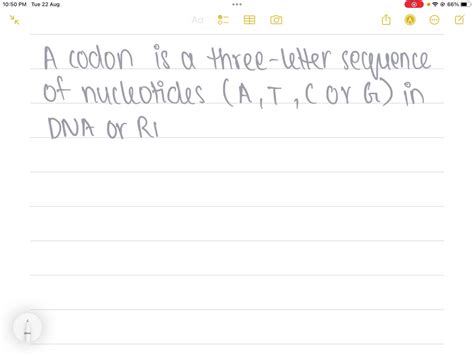 10:50 PM Tue 22 Aug
66%
Aa
A codon is a three-letter sequence
of nucleotides (A, T, C or G) in
DNA or RI